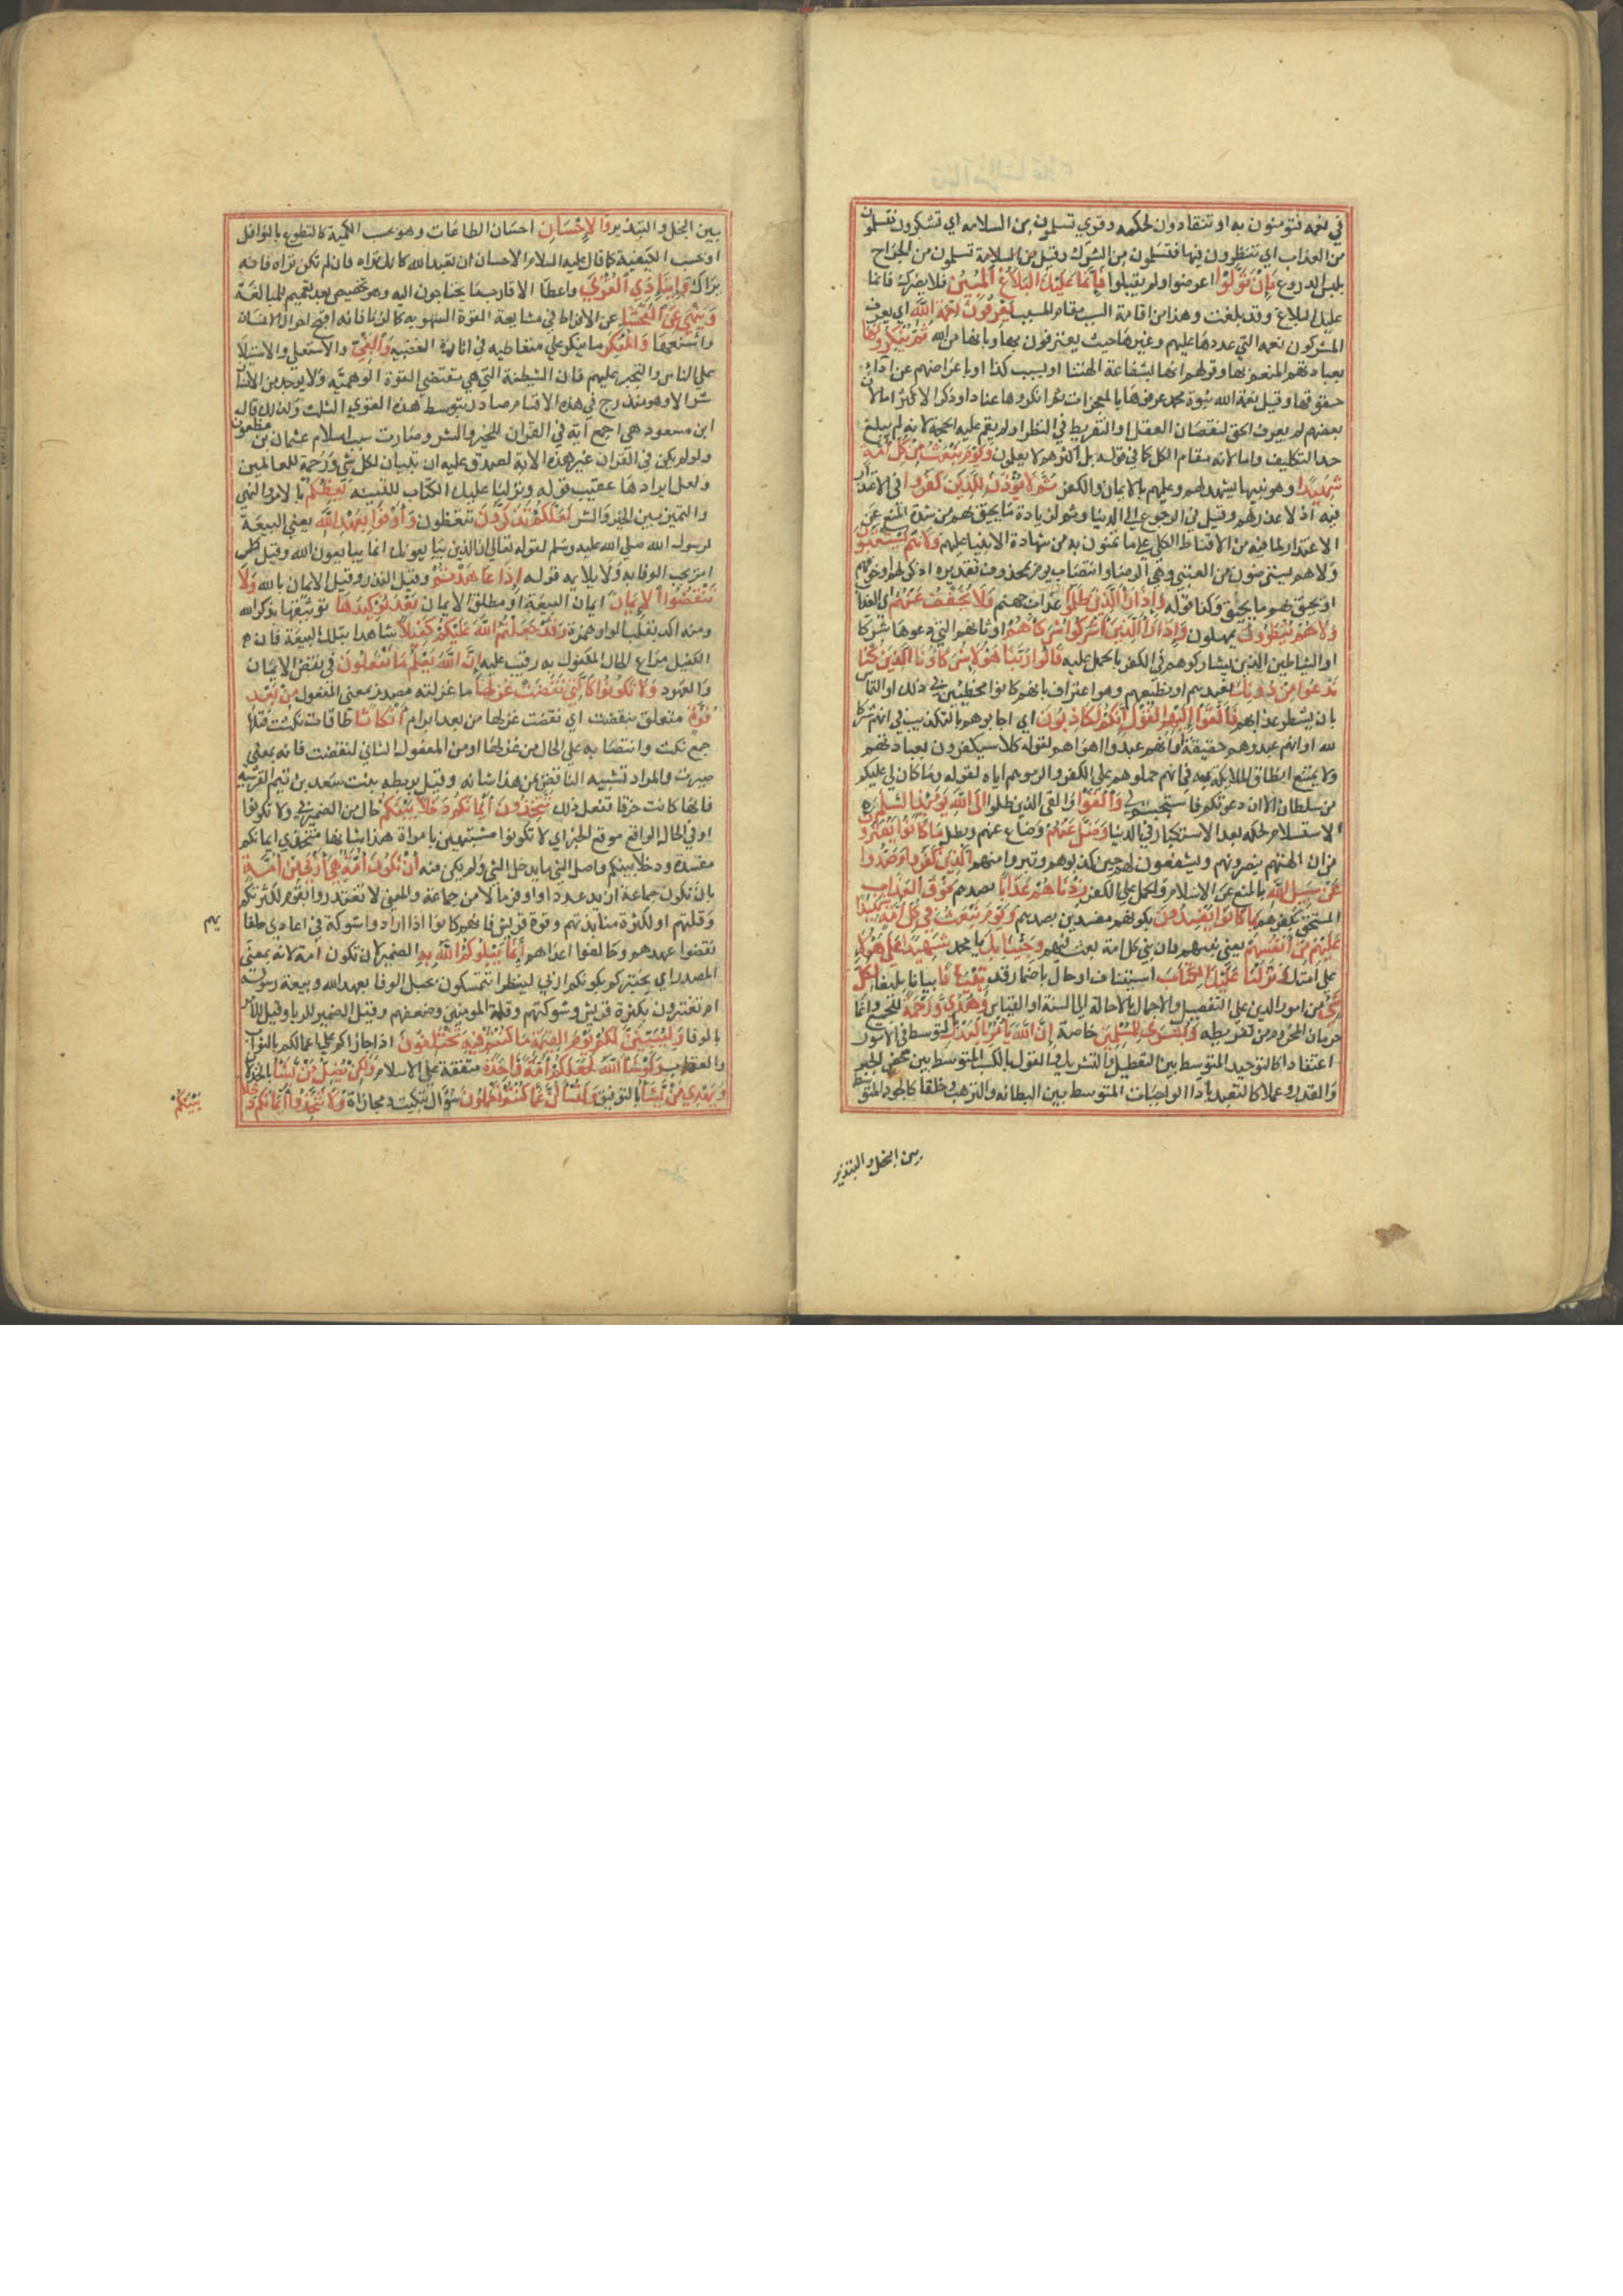 في نعمه فتؤمنون به او تنقادون لحكمه وقري تسلمون من السلامة اي تشكرون فتسلمون
من العذاب اي تنظرون فيها فتسلمون من الشرك وقيل من السلامة تسلمون من الجراح
بلبس الدروع فَإِنْ تَوَلَّوْا اعرضوا ولم يقبلوا فَإِنَّمَا عَلَيْكَ الْبَلَاغُ الْمُبِينُ فلا يضرك فانما
عليك البلاغ وقد بلغت وهذا من اقامة السبب مقام المسبب يَعْرِفُونَ نِعْمَةَ اللَّهِ اي يعرف
المشركون نعمه التي عددها عليهم وغيرها حيث يعترفون بها وبانها من الله ثُمَّ يُنْكِرُونَهَا
بعبادتهم المنعم بها وقولهم انها بشفاعة الهتنا او بسبب كذا او باعراضهم عن اداء
حقوقها وقيل نعمة الله نبوة محمد عرفوها بالمعجزات ثم انكروها عنادا وذكر الاكثر اما لان
بعضهم لم يعرف الحق لنقصان العقل او التفريط في النظر او لم يقم عليه الحجة لانه لم يبلغ
حد التكليف واما لانه مقام الكل كما في قوله بل اكثرهم لا يعلمون وَيَوْمَ نَبْعَثُ مِنْ كُلِّ أُمَّةٍ
شَهِيدًا وهو نبيها يشهد لهم وعليهم بالايمان والكفر ثُمَّ لَا يُؤْذَنُ لِلَّذِينَ كَفَرُوا في الاعتذار
فيه اذ لا عذر لهم وقيل في الرجوع الي الدنيا وثم لزيادة ما يحيق بهم من شدة المنع عن
الاعتذار لما فيه من الاقناط الكلي علي ما يمنون به من شهادة الانبيا عليهم وَلَا هُمْ يُسْتَعْتَبُونَ
ولا هم يسترضون من العتبي وهي الرضا وانتصاب يوم بمحذوف تقديره اذكر او خوفهم
او يحيق بهم ما يحيق وكذا قوله وَإِذَا رَأَى الَّذِينَ ظَلَمُوا عذاب جهنم فَلَا يُخَفَّفُ عَنْهُمْ اي العذاب
وَلَا هُمْ يُنْظَرُونَ يمهلون وَإِذَا رَأَى الَّذِينَ أَشْرَكُوا شُرَكَاءَهُمْ اوثانهم التي دعوها شركا
او الشياطين الذين يشاركوهم في الكفر بالحمل عليه قَالُوا رَبَّنَا هَؤُلَاءِ شُرَكَاؤُنَا الَّذِينَ كُنَّا
نَدْعُوا مِنْ دُونِكَ نعبدهم او نطيعهم وهو اعتراف بانهم كانوا مخطئين في ذلك او التماس
بان يشطر عذابهم فَأَلْقَوْا إِلَيْهِمُ الْقَوْلَ إِنَّكُمْ لَكَاذِبُونَ اي اجابوهم بالتكذيب في انهم شركا
لله او انهم عبدوهم حقيقة وانهم عبدوا اهواهم لقوله كلا سيكفرون بعبادتهم
ولا يمتنع انطاق الملائكة به في انهم حملوهم علي الكفر والزموهم اياه لقوله وما كان لي عليكم
من سلطان الا ان دعوتكم فاستجبتم لي وَأَلْقَوْا والقي الذين ظلموا إِلَى اللَّهِ يَوْمَئِذٍ السَّلَمَ
الاستسلام لحكمه بعد الاستكبار في الدنيا وَضَلَّ عَنْهُمْ وضاع عنهم وبطل مَا كَانُوا يَفْتَرُونَ
من ان الهتهم ينصرونهم ويشفعون لهم حين كذبوهم وتبروا منهم الَّذِينَ كَفَرُوا وَصَدُّوا
عَنْ سَبِيلِ اللَّهِ بالمنع عن الاسلام والحمل علي الكفر زِدْنَاهُمْ عَذَابًا بصدهم فَوْقَ الْعَذَابِ
المستحق بكفرهم بِمَا كَانُوا يُفْسِدُونَ بكونهم مفسدين بصدهم وَيَوْمَ نَبْعَثُ فِي كُلِّ أُمَّةٍ شَهِيدًا
عَلَيْهِمْ مِنْ أَنْفُسِهِمْ يعني نبيهم فان نبي كل امة بعث منهم وَجِئْنَا بِكَ يا محمد شَهِيدًا عَلَى هَؤُلَاءِ
علي امتك وَنَزَّلْنَا عَلَيْكَ الْكِتَابَ استيناف او حال باضمار قد تِبْيَانًا بيانا بليغا لِكُلِّ
شَيْءٍ من امور الدين علي التفصيل والاجمال بالاحالة الي السنة او القياس وَهُدًى وَرَحْمَةً للجميع وانما
حرمان المحروم من تفريطه وَبُشْرَى لِلْمُسْلِمِينَ خاصة إِنَّ اللَّهَ يَأْمُرُ بِالْعَدْلِ بالتوسط في الامور
اعتقادا كالتوحيد المتوسط بين التعطيل والتشريك والقول بالكسب المتوسط بين محض الجبر
والقدر وعملا كالتعبد باداء الواجبات المتوسط بين البطالة والترهب وخلقا كالجود المتوسط
بين البخل والتبذير
بين البخل والتبذير وَالْإِحْسَانِ احسان الطاعات وهو بحسب الكمية كالتطوع بالنوافل
او بحسب الكيفية كما قال عليه السلام الاحسان ان تعبد الله كانك تراه فان لم تكن تراه فانه
يراك وَإِيتَاءِ ذِي الْقُرْبَى واعطا الاقارب ما يحتاجون اليه وهو تخصيص بعد تعميم للمبالغة
وَيَنْهَى عَنِ الْفَحْشَاءِ عن الافراط في مشايعة القوة الشهوية كالزنا فانه اقبح احوال الانسان
واشنعها وَالْمُنْكَرِ ما ينكر علي متعاطيه في اثارة الغضبيه وَالْبَغْيِ والاستعلا والاستيلا
علي الناس والتجبر عليهم فانها الشيطنة التي هي مقتضي القوة الوهمية ولا يوجد من الانسان
شر الا وهو مندرج في هذه الاقسام صادر بتوسط هذه القوي الثلث ولذلك قال
ابن مسعود هي اجمع آية في القرآن للخير والشر وصارت سبب اسلام عثمان بن مظعون
ولو لم يكن في القرآن غير هذه الاية لصدق عليه انه تبيان لكل شي ورحمة للعالمين
ولعل ايرادها عقيب قوله ونزلنا عليك الكتاب للتنبيه يَعِظُكُمْ بالامر والنهي
والتميز بين الخير والشر لَعَلَّكُمْ تَذَكَّرُونَ تتعظون وَأَوْفُوا بِعَهْدِ اللَّهِ يعني البيعة
لرسول الله صلي الله عليه وسلم لقوله تعالي ان الذين يبايعونك انما يبايعون الله وقيل كل
امر يجب الوفا به ولا يلايمه قوله إِذَا عَاهَدْتُمْ وقيل النذر وقيل الايمان بالله وَلَا
تَنْقُضُوا الْأَيْمَانَ ايمان البيعة او مطلق الايمان بَعْدَ تَوْكِيدِهَا توثيقها بذكر الله
ومنه اكد بقلب الواو همزة وَقَدْ جَعَلْتُمُ اللَّهَ عَلَيْكُمْ كَفِيلًا شاهدا بتلك البيعة فان
الكفيل مراع لحال المكفول به رقيب عليه إِنَّ اللَّهَ يَعْلَمُ مَا تَفْعَلُونَ في نقض الايمان
والعهود وَلَا تَكُونُوا كَالَّتِي نَقَضَتْ غَزْلَهَا ما غزلته مصدر بمعني المفعول مِنْ بَعْدِ
قُوَّةٍ متعلق بنقضت اي نقضت غزلها من بعد ابرام أَنْكَاثًا طاقات نكثت فتلها
جمع نكث وانتصابه علي الحال من غزلها او من المفعول الثاني لنقضت فانه بمعني
صيرت والمراد تشبيه الناقض بمن هذا شانه وقيل بريطه بنت سعد بن تيم القرشية
فانها كانت خرقا تفعل ذلك تَتَّخِذُونَ أَيْمَانَكُمْ دَخَلًا بَيْنَكُمْ حال من الضمير في ولا تكونوا
او في الحال الواقع موقع الخبر اي لا تكونوا مشتبهين بامراة هذا شانها متخذي ايمانكم
مفسدة ودخلا بينكم واصل الدخل ما يدخل الشي ولم يكن منه أَنْ تَكُونَ أُمَّةٌ هِيَ أَرْبَى مِنْ أُمَّةٍ
بان تكون جماعة ازيد عددا واوفر مالا من جماعة والمعني لا تغدروا بقوم لكثرتكم
وقلتهم او لكثرة منابذتهم وقوة قريش فانهم كانوا اذا ارادوا شوكة في اعادي حلفا
يهم
نقضوا عهدهم وحالفوا اعداهم إِنَّمَا يَبْلُوكُمُ اللَّهُ بِهِ الضمير لان تكون امة لانه بمعني
المصدر اي يختبركم بكونكم اربي لينظر اتتمسكون بحبل الوفا بعهد الله وبيعة رسوله
ام تغترون بكثرة قريش وشوكتهم وقلة المومنين وضعفهم وقيل الضمير للربا وقيل للامر
بالوفا وَلَيُبَيِّنَنَّ لَكُمْ يَوْمَ الْقِيَامَةِ مَا كُنْتُمْ فِيهِ تَخْتَلِفُونَ اذا جازاكم علي اعمالكم بالثواب
والعقاب وَلَوْ شَاءَ اللَّهُ لَجَعَلَكُمْ أُمَّةً وَاحِدَةً متفقة علي الاسلام وَلَكِنْ يُضِلُّ مَنْ يَشَاءُ بالخذلان
وَيَهْدِي مَنْ يَشَاءُ بالتوفيق وَلَتُسْأَلُنَّ عَمَّا كُنْتُمْ تَعْمَلُونَ سؤال تبكيت ومجازاة وَلَا تَتَّخِذُوا أَيْمَانَكُمْ دَخَلًا
بَيْنَكُمْ